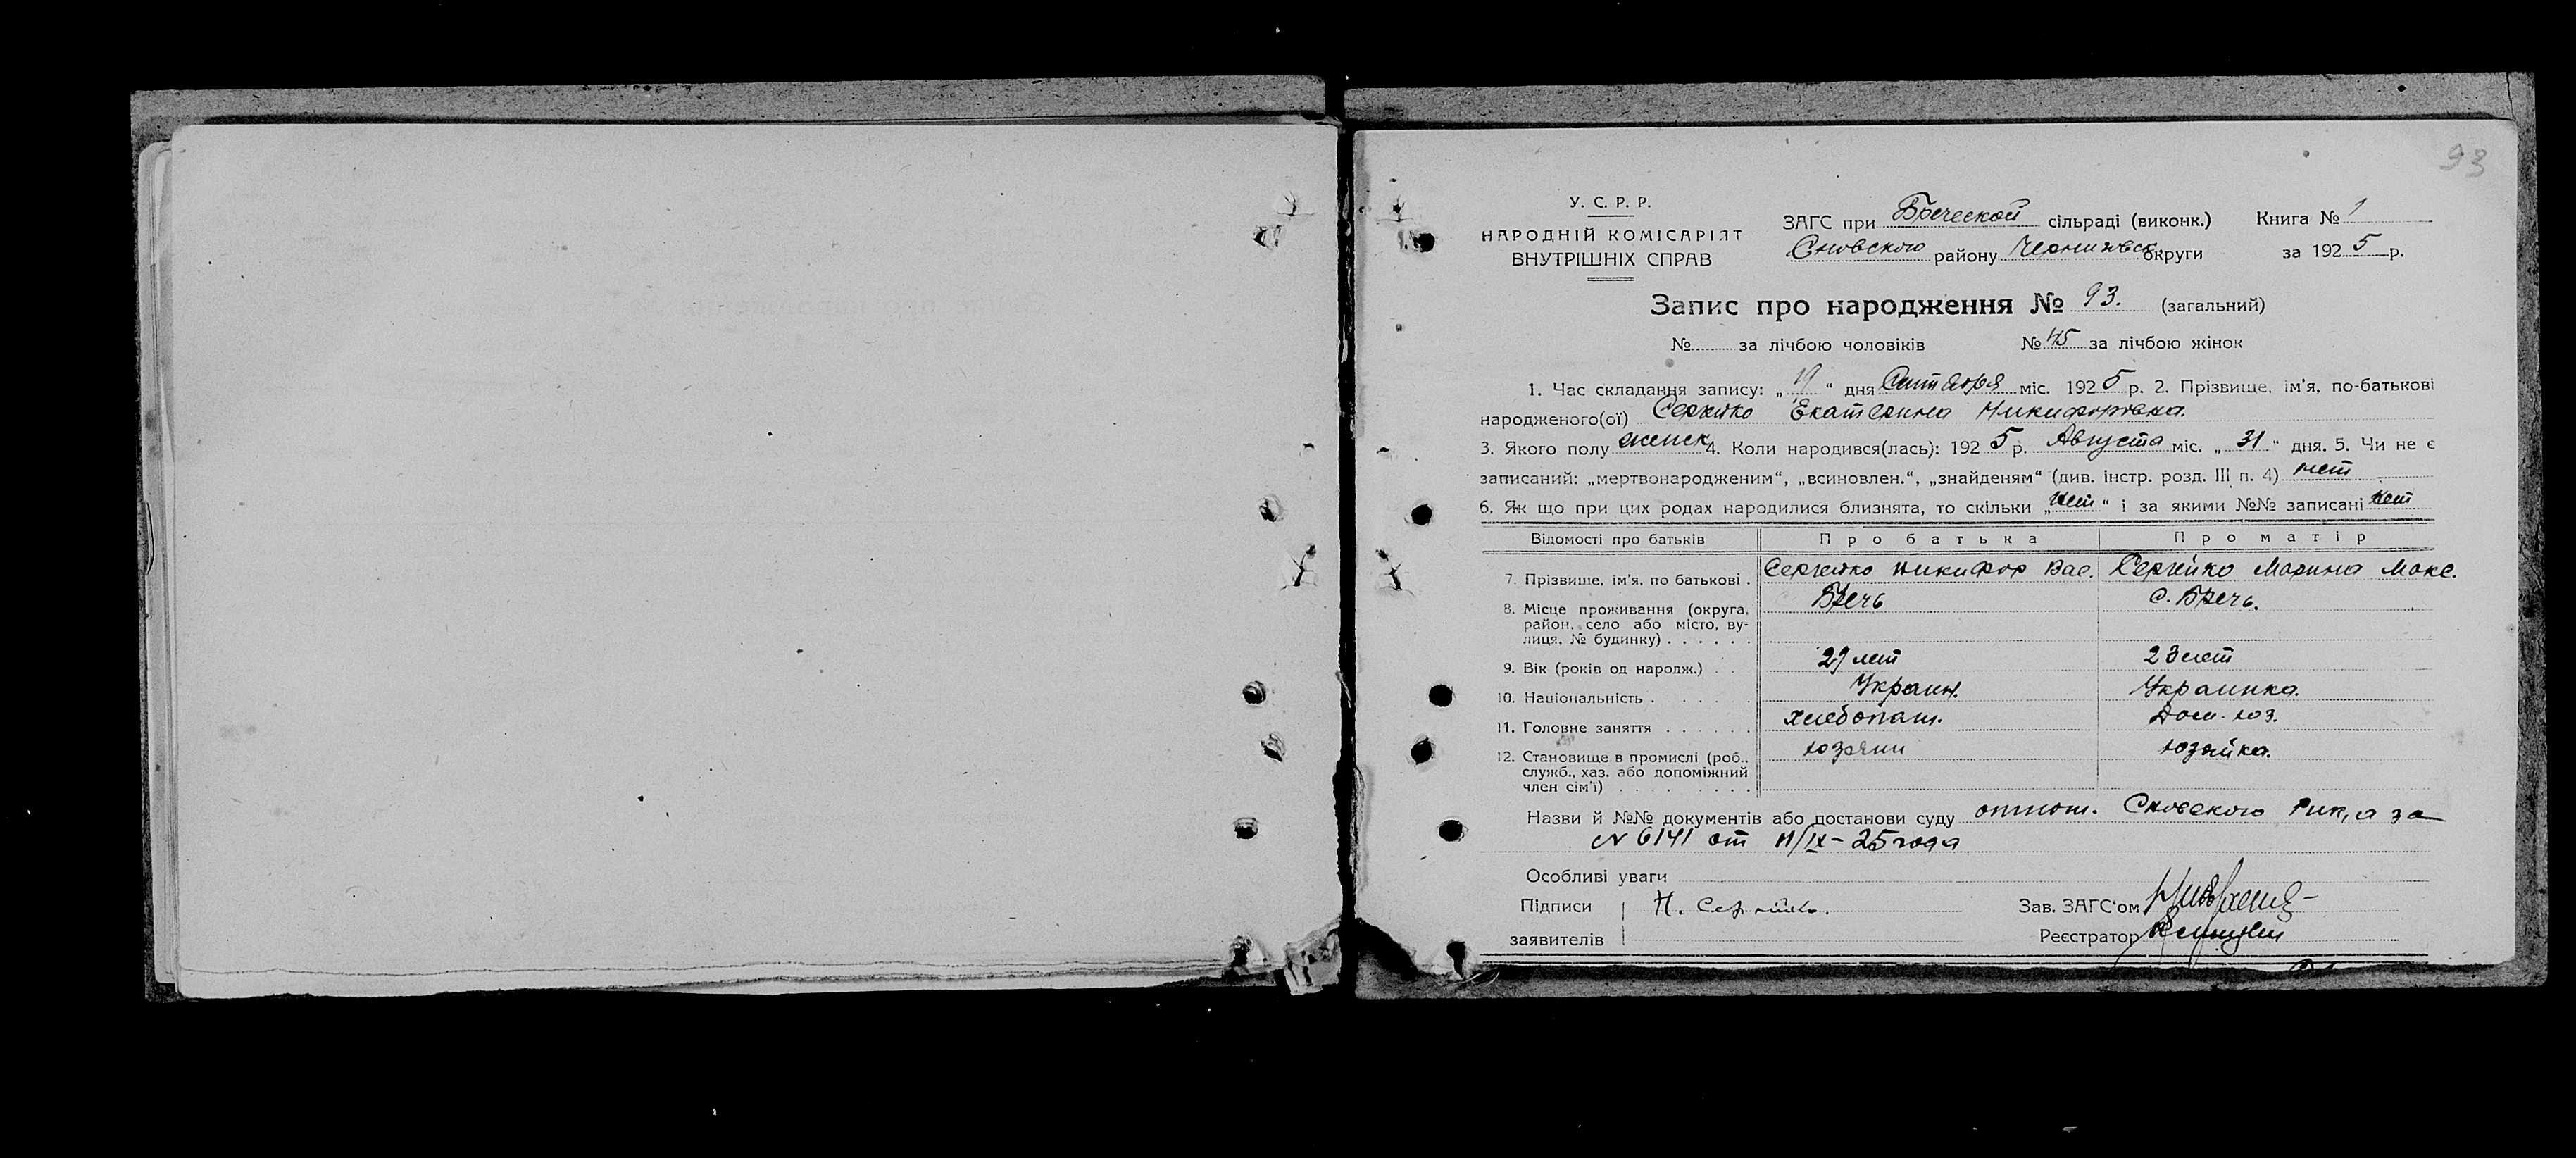 93
У. С. Р. Р.
НАРОДНІЙ КОМІСАРІЯТ
ВНУТРІШНІХ СПРАВ
ЗАГС при Бреческой сільраді (виконк.) Книга № 1
Сновского району Черниговск округи за 1925 р.
Запис про народження № 93. (загальний)
№ за лічбою чоловіків № 45 за лічбою жінок
1. Час складання запису: „19“ дня Сентября міс. 1925 р. 2. Прізвище, ім'я, по-батькові
народженого(ої) Сергейко Екатерина Никифоровна.
3. Якого полу женск 4. Коли народився(лась): 1925 р. Августа міс. „31“ дня. 5. Чи не є
записаний: „мертвонародженим“, „всиновлен.“, „знайденям“ (див. інстр. розд. III п. 4) нет
6. Як що при цих родах народилися близнята, то скільки „нет“ і за якими №№ записані нет
Відомості про батьків Про батька Про матір
7. Прізвище, ім'я, по батькові . Сергейко Никифор Вас. Сергейко Марина Макс.
8. Місце проживання (округа, Бречь с. Бречь.
район, село або місто, ву-
лиця, № будинку) . . . . . .
9. Вік (років од народж.) . . 29 лет 23 лет
10. Національність . . . . . . Украин. Украинка.
11. Головне заняття . . . . . . хлебопаш. Дом. хоз.
12. Становище в промислі (роб., хозяин хозяйка.
служб., хаз. або допоміжний
член сім'ї) . . . . . . . . .
Назви й №№ документів або достанови суду отнош. Сновского Рик,а за
N 6141 от 11/IX-25 года
Особливі уваги
Підписи Н. Сергейко. Зав. ЗАГС'ом
заявителів Реєстратор